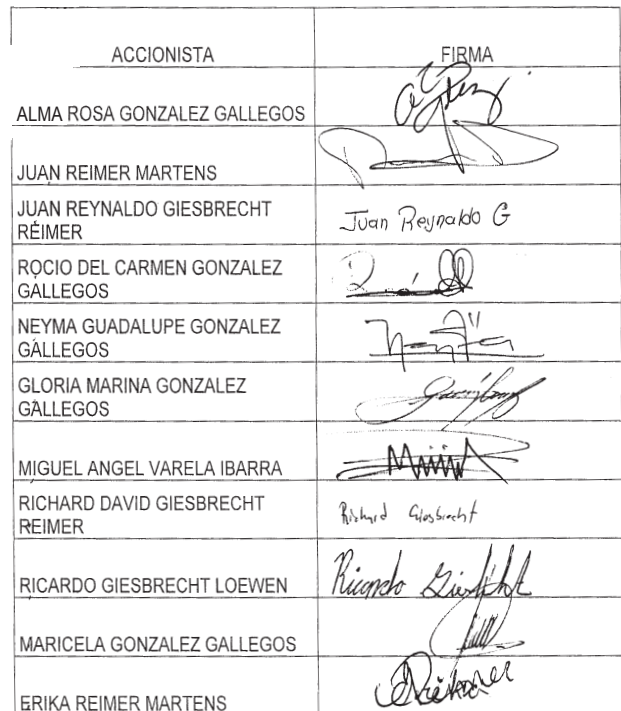 ACCIONISTA FIRMA
ALMA ROSA GONZALEZ GALLEGOS
JUAN REIMER MARTENS
JUAN REYNALDO GIESBRECHT
REIMER
Juan Reynaldo G
ROCIO DEL CARMEN GONZALEZ
GALLEGOS
NEYMA GUADALUPE GONZALEZ
GALLEGOS
GLORIA MARINA GONZALEZ
GALLEGOS
MIGUEL ANGEL VARELA IBARRA
RICHARD DAVID GIESBRECHT
REIMER
Richard Giesbrecht
RICARDO GIESBRECHT LOEWEN Ricardo
MARICELA GONZALEZ GALLEGOS
ERIKA REIMER MARTENS